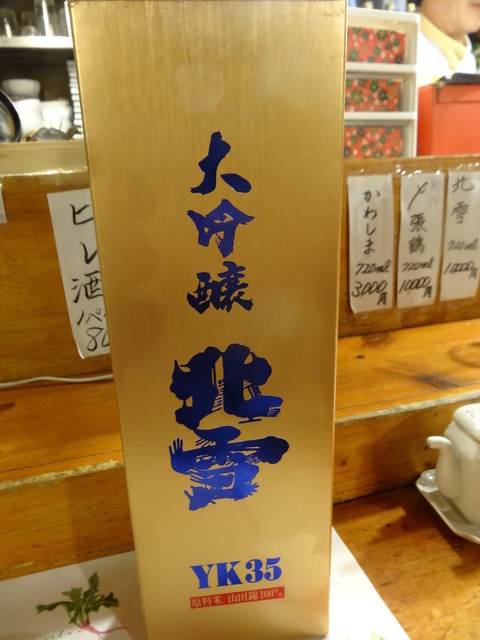 大吟醸
北雪
YK35
原料米 山田錦100%
ヒレ酒
かわしま
720ml
3000円
〆張鶴
720ml
10000円
北雪
720ml
10000円